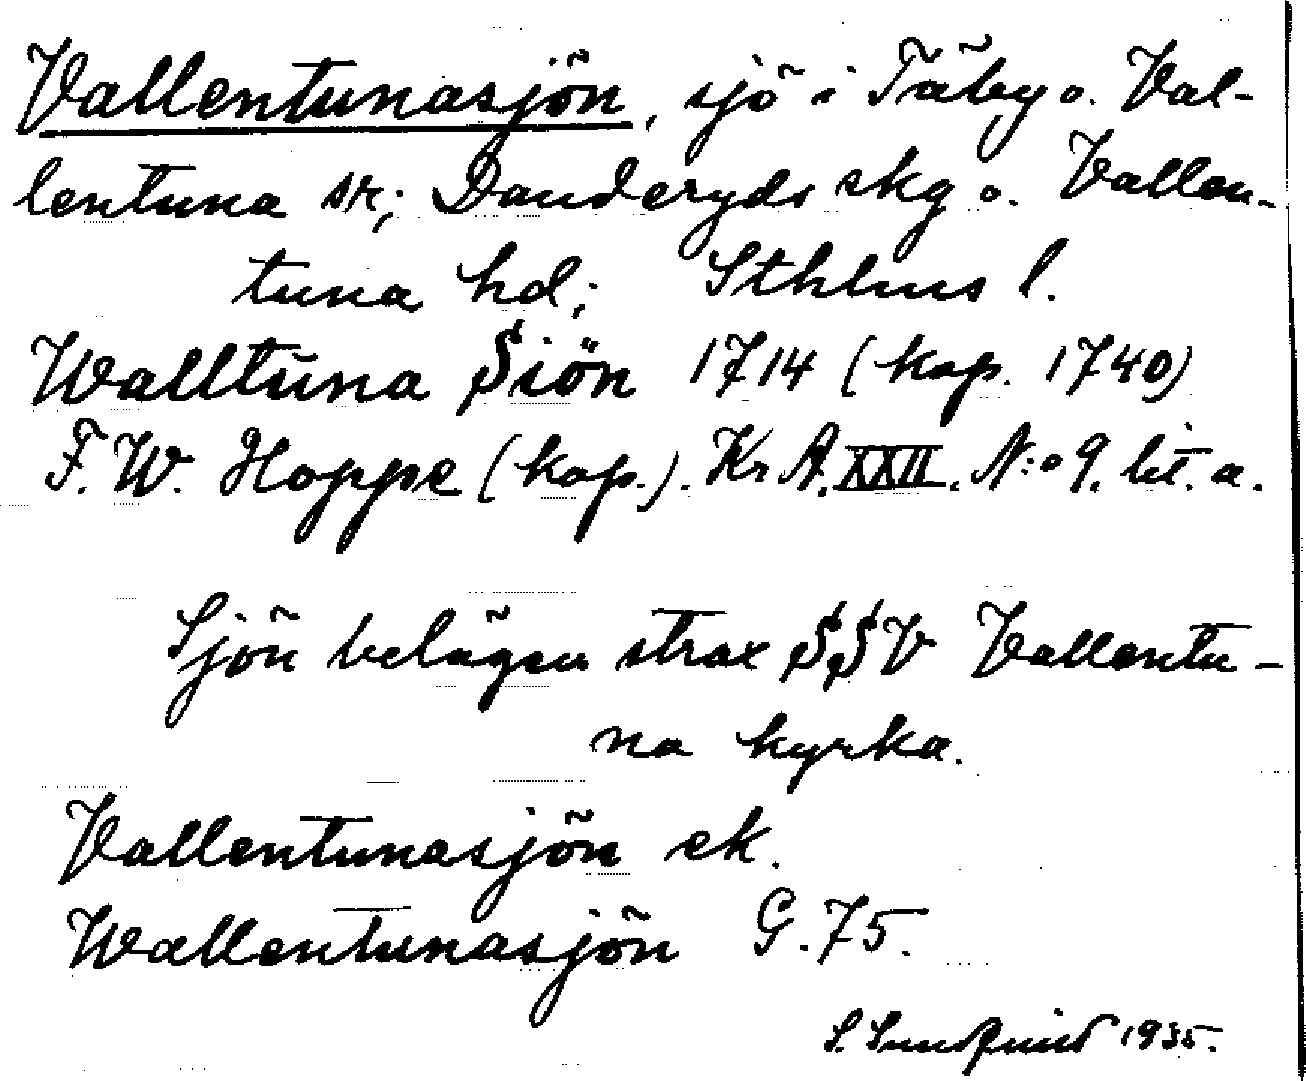 Vallentunasjön, sjö i Täby o. Val-
lentuna sk; Danderyds skg o. Vallen-
tuna hd; Sthlms l.
Walltuna Siön 1714 (kop. 1740)
F. W. Hoppe (kop.). Kr A. XXII. N:o 9. lit. a.
Sjön belägen strax SSV Vallentu-
na kyrka.
Vallentunasjön ek.
Wallentunasjön G. 75.
S. Sundquist 1935.